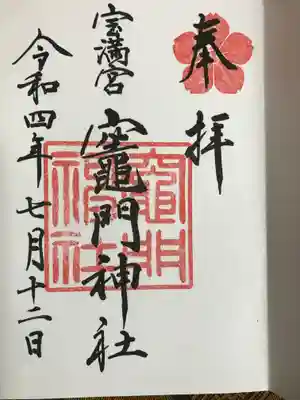 奉拝
宝満宮
竈門神社
竈門神社
令和四年七月十二日